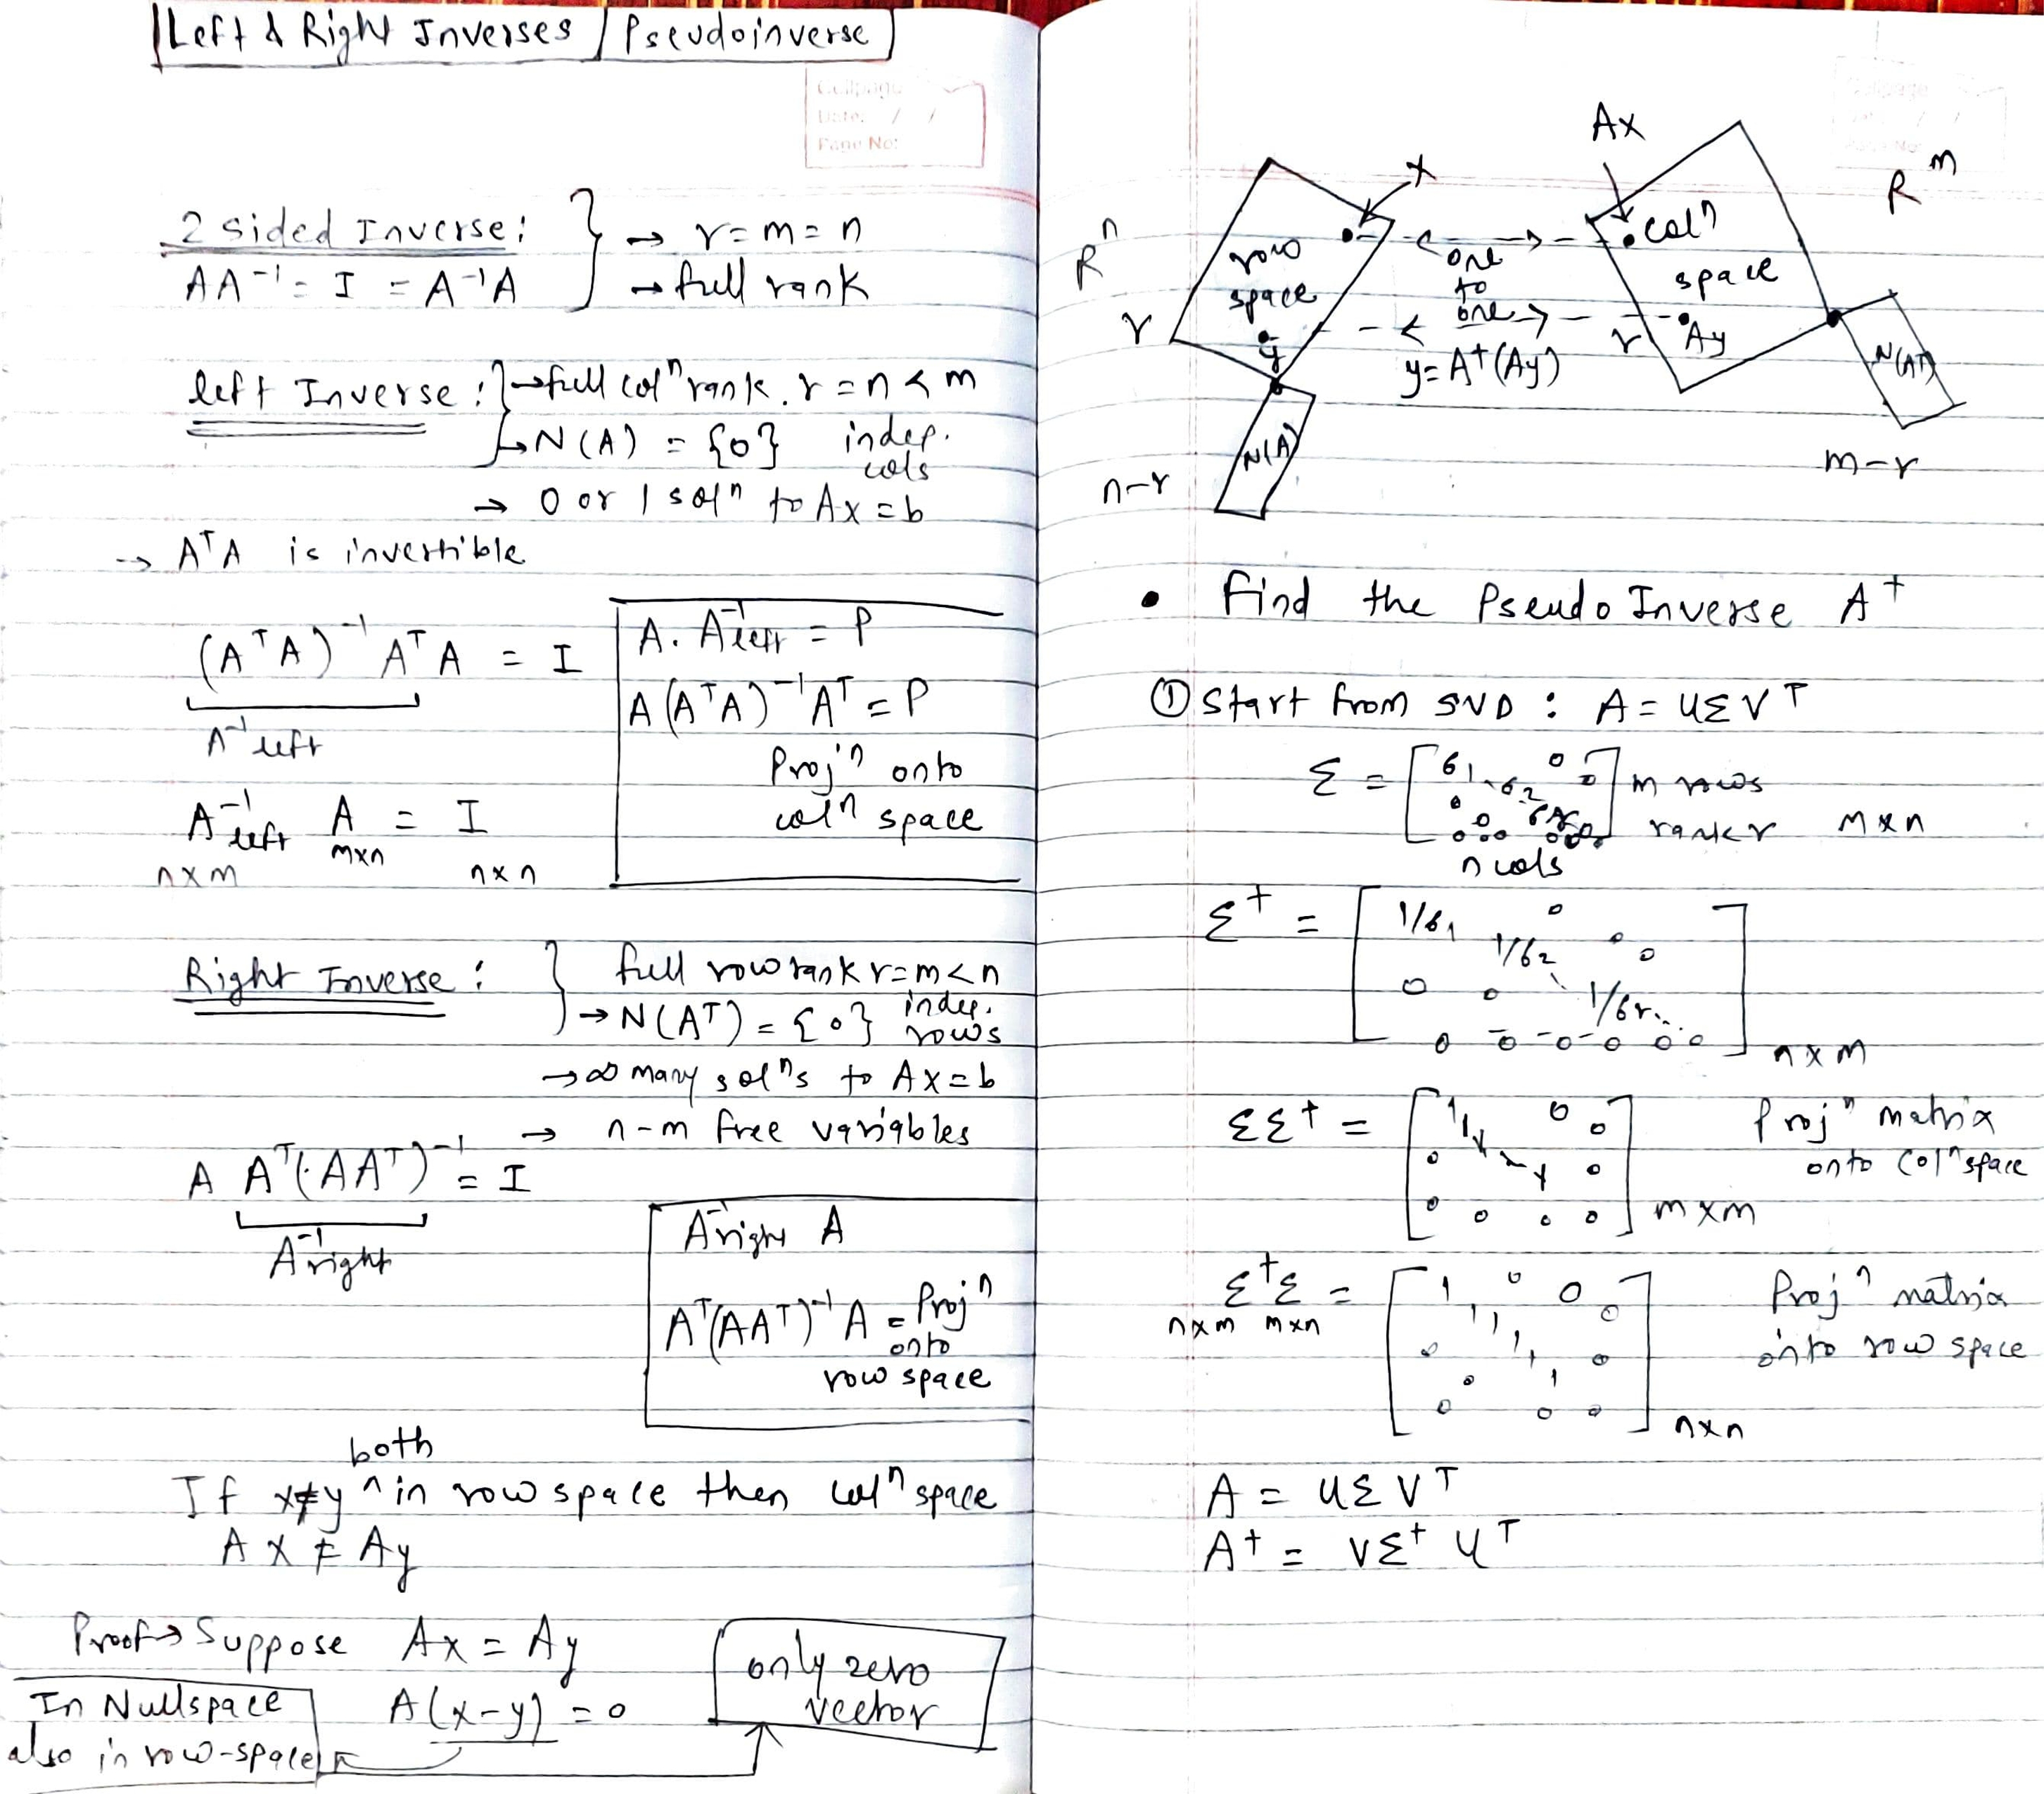 Left & Right Inverses / Pseudoinverse
2 sided Inverse: → r=m=n
AA⁻¹ = I = A⁻¹A → full rank
left Inverse: → full colⁿ rank. r=n<m
↳ N(A) = {0} indep. cols
→ 0 or 1 solⁿ to Ax=b
→ AᵀA is invertible
(AᵀA)⁻¹AᵀA = I
A⁻¹left
A⁻¹left A = I
nxm mxn nxn
A. A⁻¹left = P
A(AᵀA)⁻¹Aᵀ = P
Projⁿ onto
colⁿ space
Right Inverse: full row rank r=m<n
→ N(Aᵀ) = {0} indep. rows
→ ∞ many solⁿs to Ax=b
→ n-m free variables
A Aᵀ(AAᵀ)⁻¹ = I
A⁻¹right
A⁻¹right A
Aᵀ(AAᵀ)⁻¹A = Projⁿ
onto
row space
both
If x≠y ^ in row space then colⁿ space
Ax ≠ Ay
Proof → Suppose Ax = Ay
A(x-y) = 0
In Nullspace
also in row-space
only zero
vector
Ax
x
Rⁿ
Rᵐ
row
space
one
to
one
colⁿ
space
r
y
y=A⁺(Ay)
r
Ay
N(A)
N(Aᵀ)
n-r
m-r
• Find the Pseudo Inverse A⁺
① Start from SVD: A = UΣVᵀ
Σ = [σ1 σ2 0 0 0 0 σr 0 0 0 0 0 0 0] m rows
rank r mxn
n cols
Σ⁺ = [1/σ1 0 1/σ2 0 0 0 0 1/σr 0 0 0 0 0 0] nxm
ΣΣ⁺ = [1 1 0 0 0 1 0 0 0 0 0] mxm Projⁿ matrix
onto colⁿ space
Σ⁺Σ = [1 0 0 0 1 1 0 1 0 0 1 0 0 0] nxn Projⁿ matrix
nxm mxn onto row space
A = UΣVᵀ
A⁺ = VΣ⁺Uᵀ